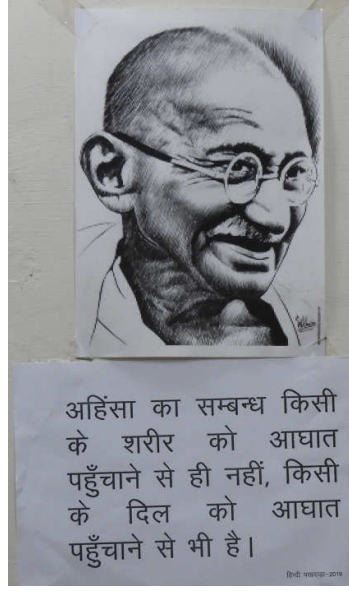 अहिंसा का सम्बन्ध किसी
के शरीर को आघात
पहुँचाने से ही नहीं, किसी
के दिल को आघात
पहुँचाने से भी है।
हिन्दी पखवाड़ा-2019